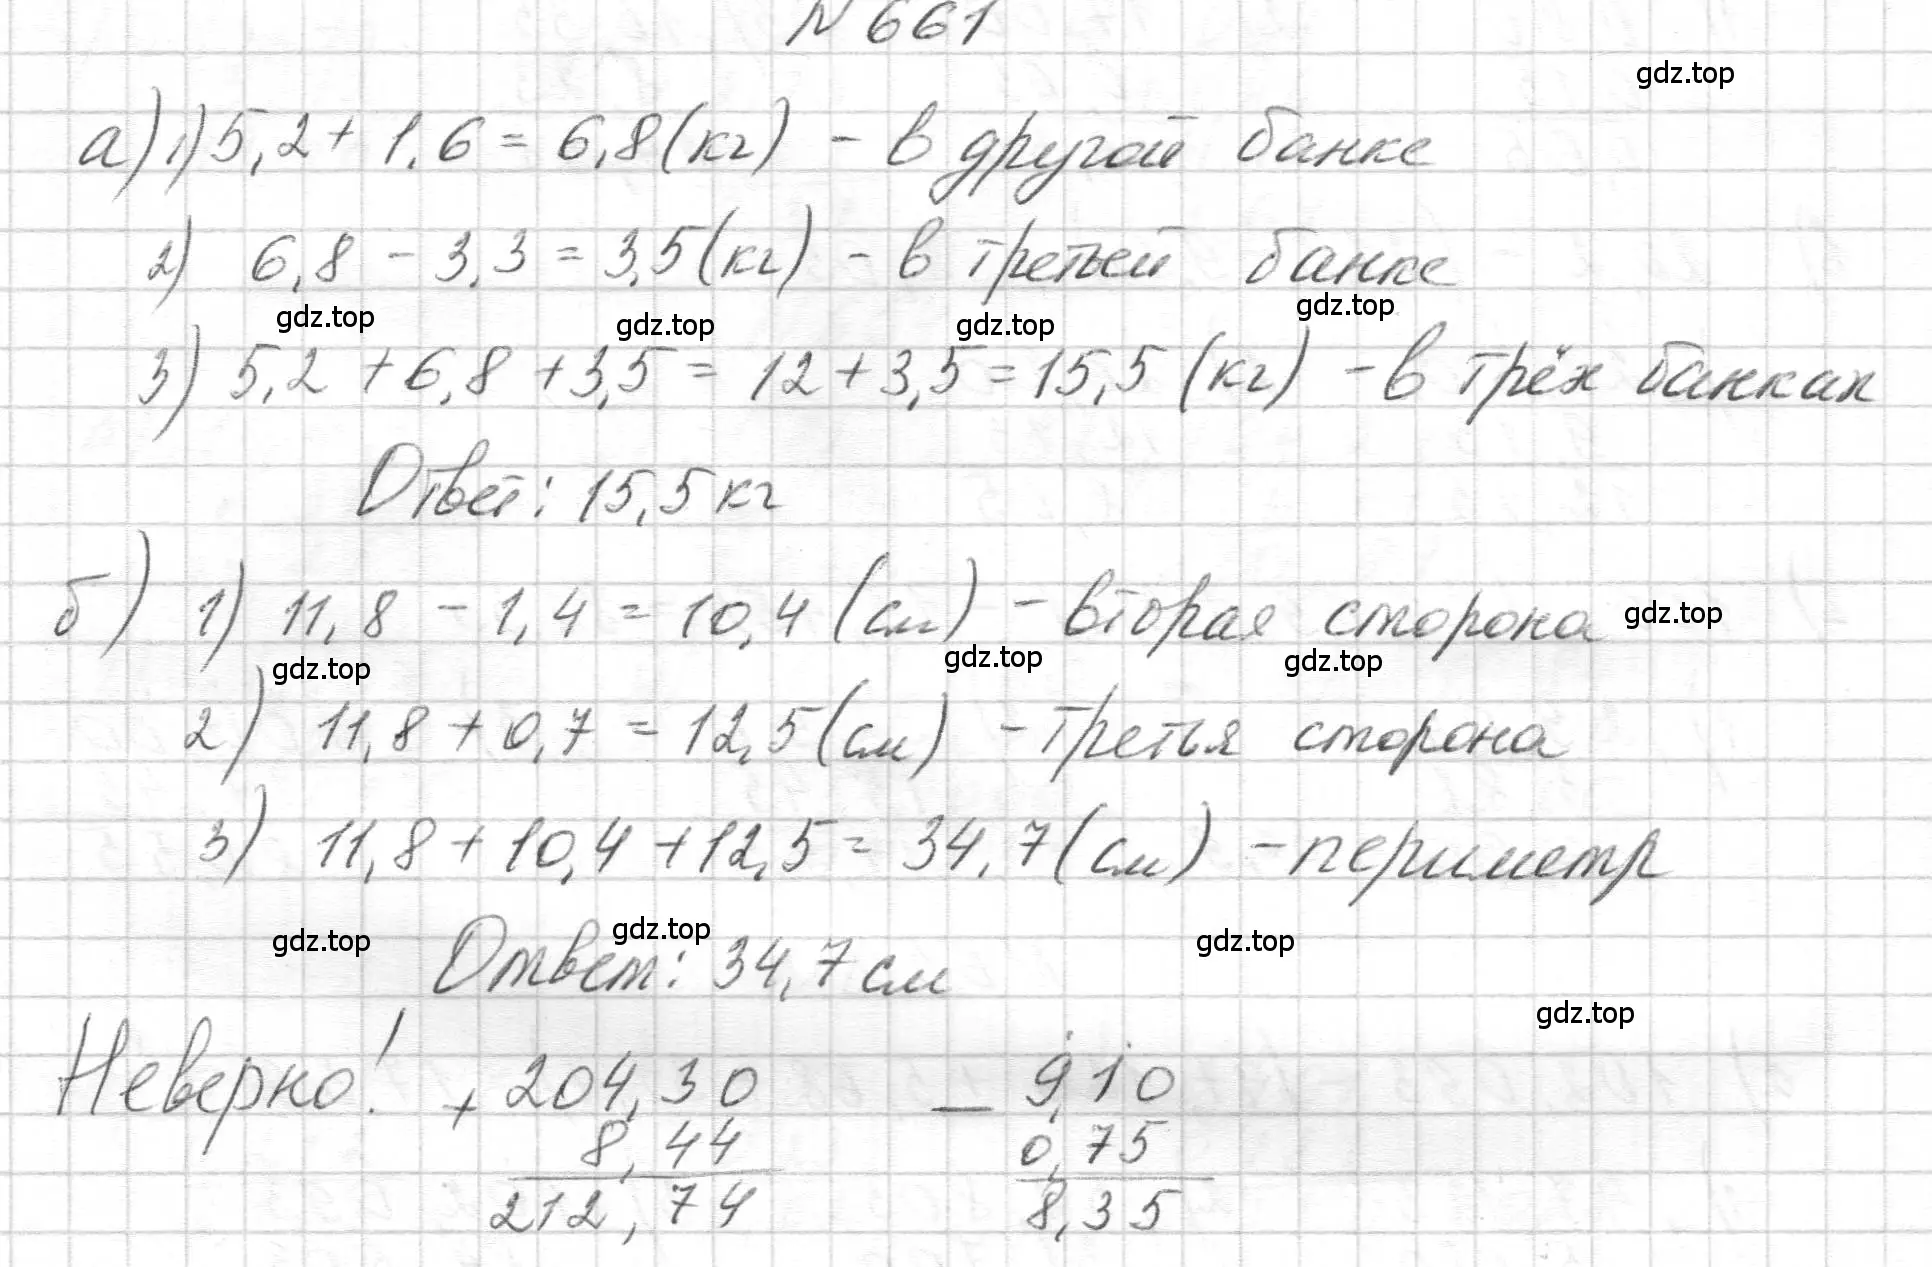 № 661
gdz.top
а) 1) 5,2 + 1,6 = 6,8 (кг) - в другой банке
2) 6,8 - 3,3 = 3,5 (кг) - в третьей банке
gdz.top gdz.top gdz.top gdz.top
3) 5,2 + 6,8 + 3,5 = 12 + 3,5 = 15,5 (кг) - в трёх банках
Ответ: 15,5 кг
б) 1) 11,8 - 1,4 = 10,4 (см) - вторая сторона gdz.top
gdz.top gdz.top gdz.top
2) 11,8 + 0,7 = 12,5 (см) - третья сторона
3) 11,8 + 10,4 + 12,5 = 34,7 (см) - периметр
gdz.top gdz.top gdz.top
Ответ: 34,7 см
gdz.top
Неверно! + 204,30 - 9,10
8,44 0,75
212,74 8,35